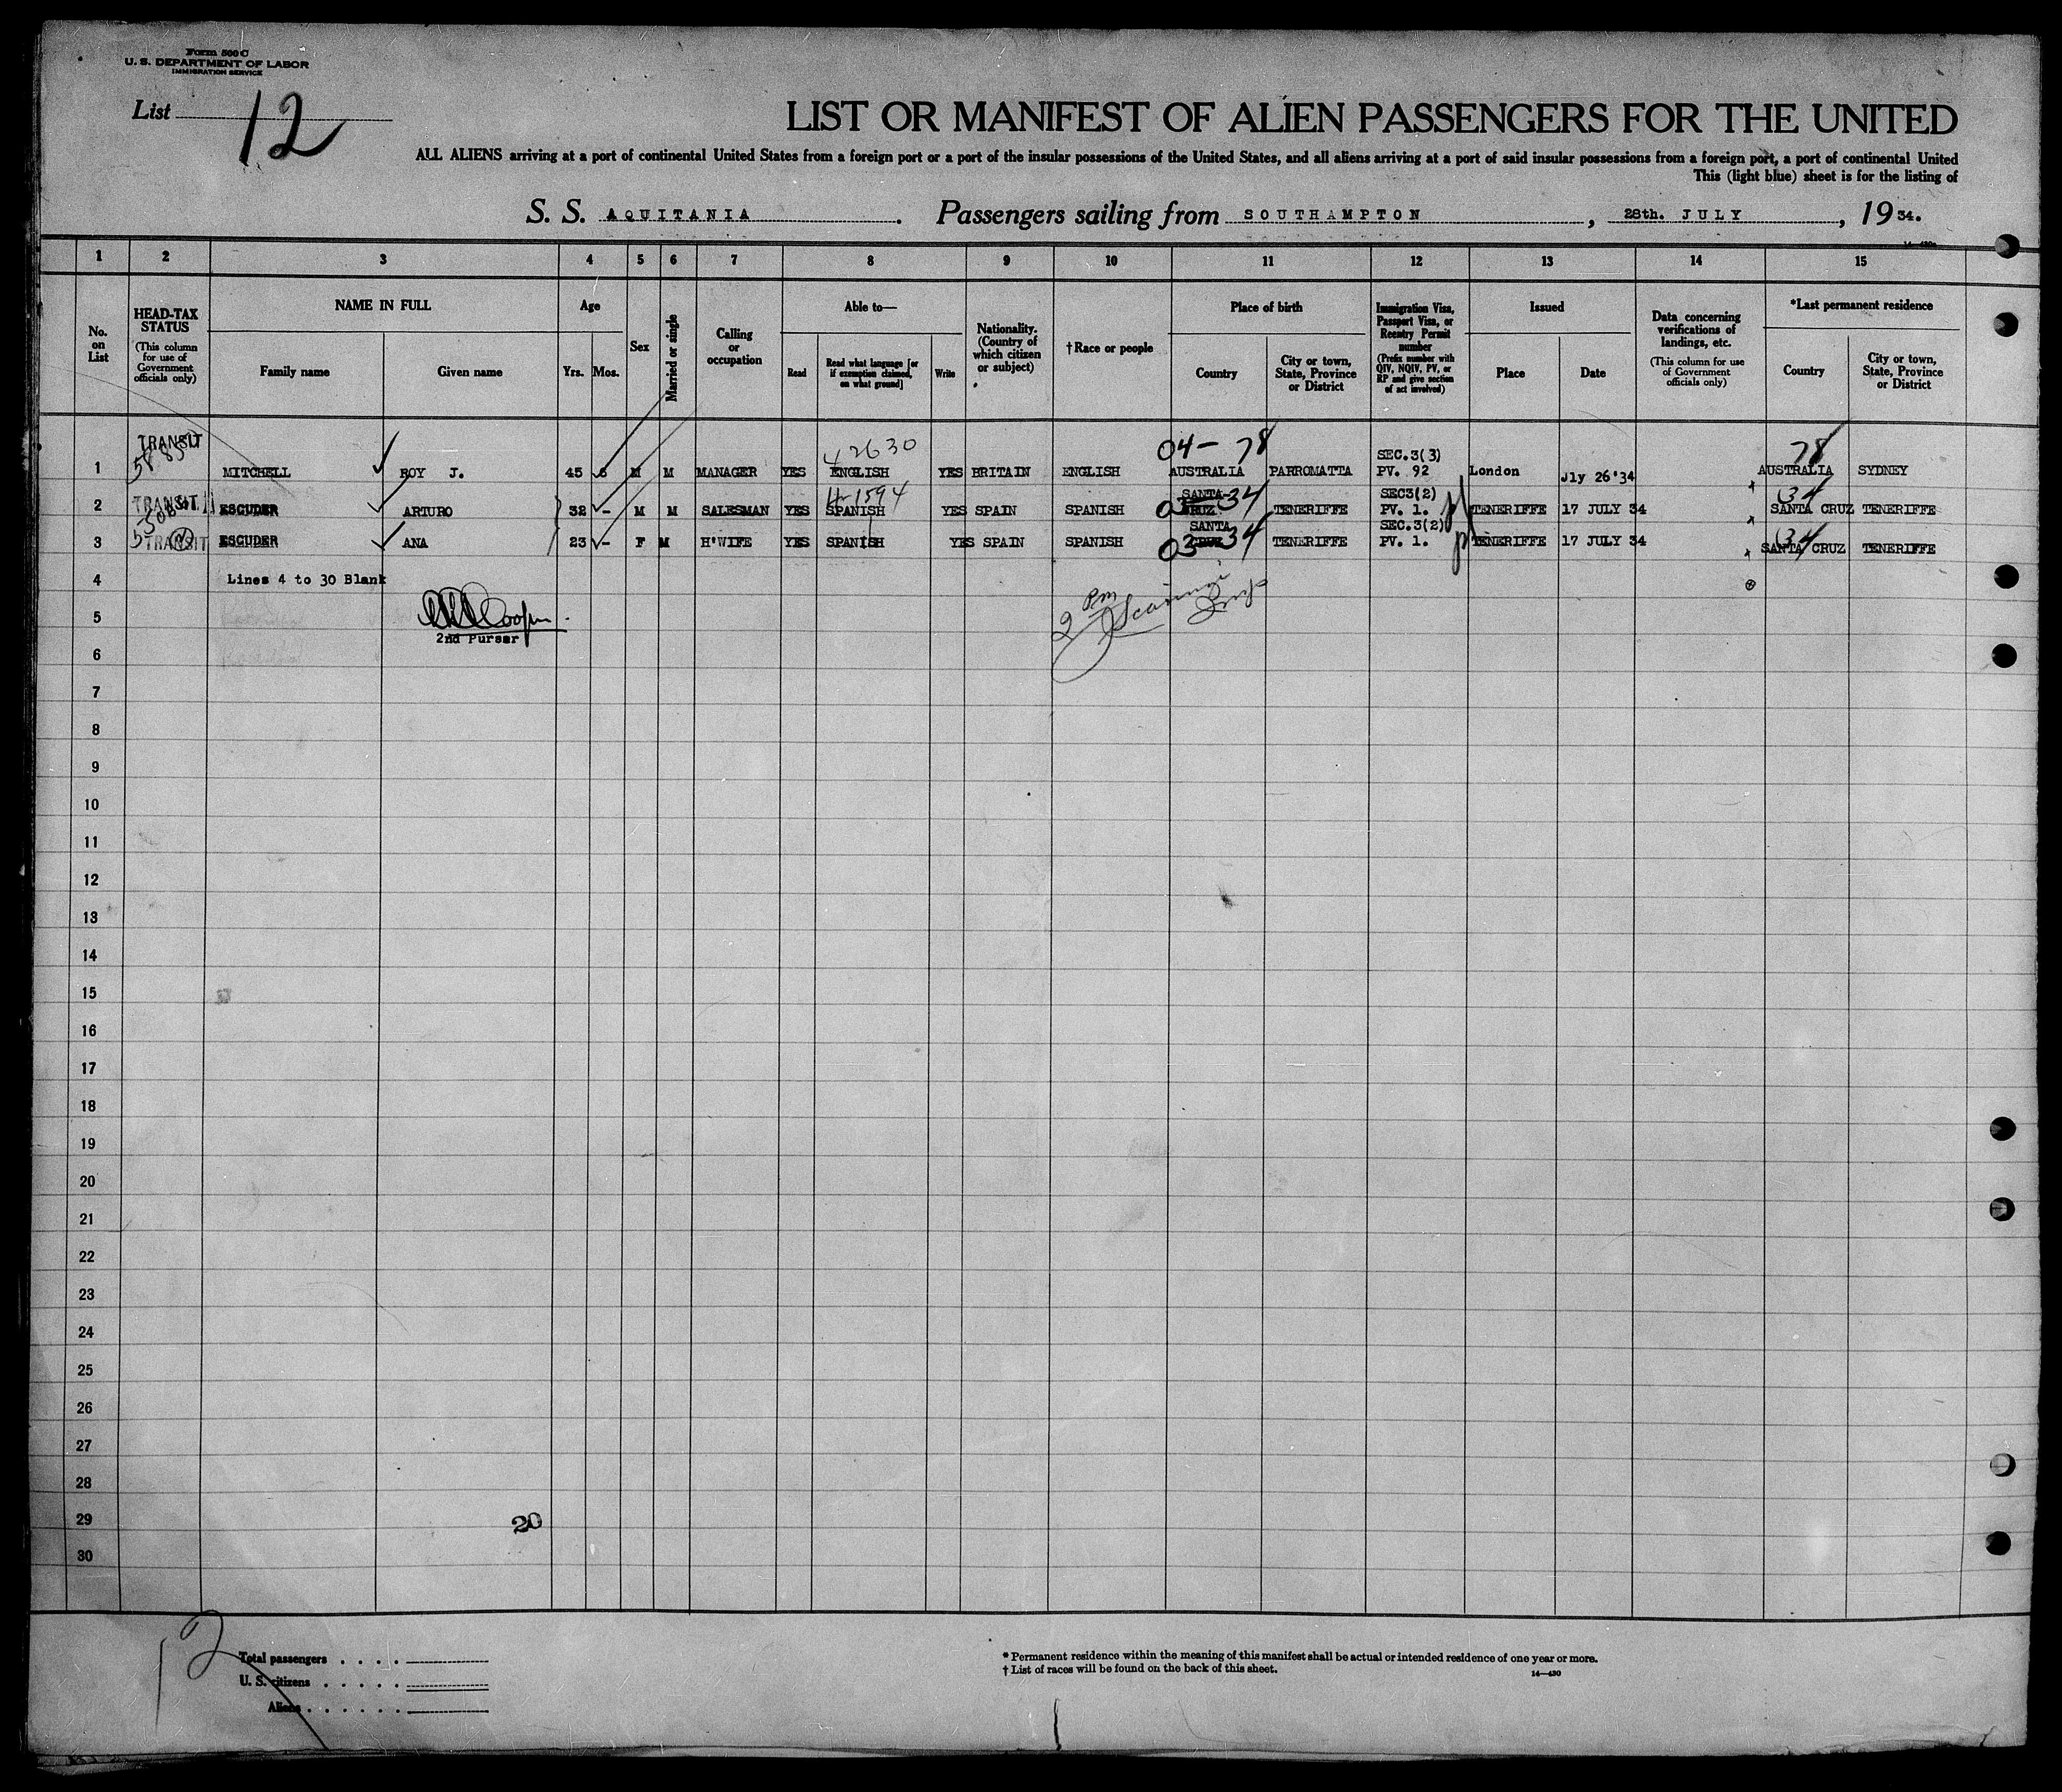 Form 500 C
U. S. DEPARTMENT OF LABOR
IMMIGRATION SERVICE
List 12
LIST OR MANIFEST OF ALIEN PASSENGERS FOR THE UNITED
ALL ALIENS arriving at a port of continental United States from a foreign port or a port of the insular possessions of the United States, and all aliens arriving at a port of said insular possessions from a foreign port, a port of continental United
This (light blue) sheet is for the listing of
S. S. AQUITANIA. Passengers sailing from SOUTHAMPTON, 28th. JULY, 1934.
1 2 3 4 5 6 7 8 9 10 11 12 13 14 15
No. on List
HEAD-TAX STATUS
(This column for use of Government officials only)
NAME IN FULL
Family name
Given name
Age
Yrs. Mos.
Sex
Married or single
Calling or occupation
Able to—
Read
Read what language [or if exemption claimed, on what ground]
Write
Nationality. (Country of which citizen or subject)
†Race or people
Place of birth
Country
City or town, State, Province or District
Immigration Visa, Passport Visa, or Reentry Permit number
(Prefix number with QIV, NQIV, PV, or RP and give section of act involved)
Issued
Place
Date
Data concerning verifications of landings, etc.
(This column for use of Government officials only)
*Last permanent residence
Country
City or town, State, Province or District
TRANSIT 42630 04-78 SEC.3(3) 78
1 MITCHELL ROY J. 45 6 M M MANAGER YES ENGLISH YES BRITAIN ENGLISH AUSTRALIA PARROMATTA PV. 92 London Jly 26'34 AUSTRALIA SYDNEY
TRANSIT 4-1594 SANTA 03-34 SEC3(2) 34
2 ESCUDER ARTURO 32 - M M SALESMAN YES SPANISH YES SPAIN SPANISH CRUZ TENERIFFE PV. 1. TENERIFFE 17 JULY 34 SANTA CRUZ TENERIFFE
TRANSIT SANTA 03-34 SEC.3(2) 34
3 ESCUDER ANA 23 - F M H'WIFE YES SPANISH YES SPAIN SPANISH CRUZ TENERIFFE PV. 1. TENERIFFE 17 JULY 34 SANTA CRUZ TENERIFFE
4 Lines 4 to 30 Blank
5 Cooper
2 Pm Insp
2nd Purser
6
7
8
9
10
11
12
13
14
15
16
17
18
19
20
21
22
23
24
25
26
27
28
29 20
30
12
Total passengers . . . .
U. S. citizens . . . . .
Aliens . . . . . .
* Permanent residence within the meaning of this manifest shall be actual or intended residence of one year or more.
† List of races will be found on the back of this sheet.
14—430